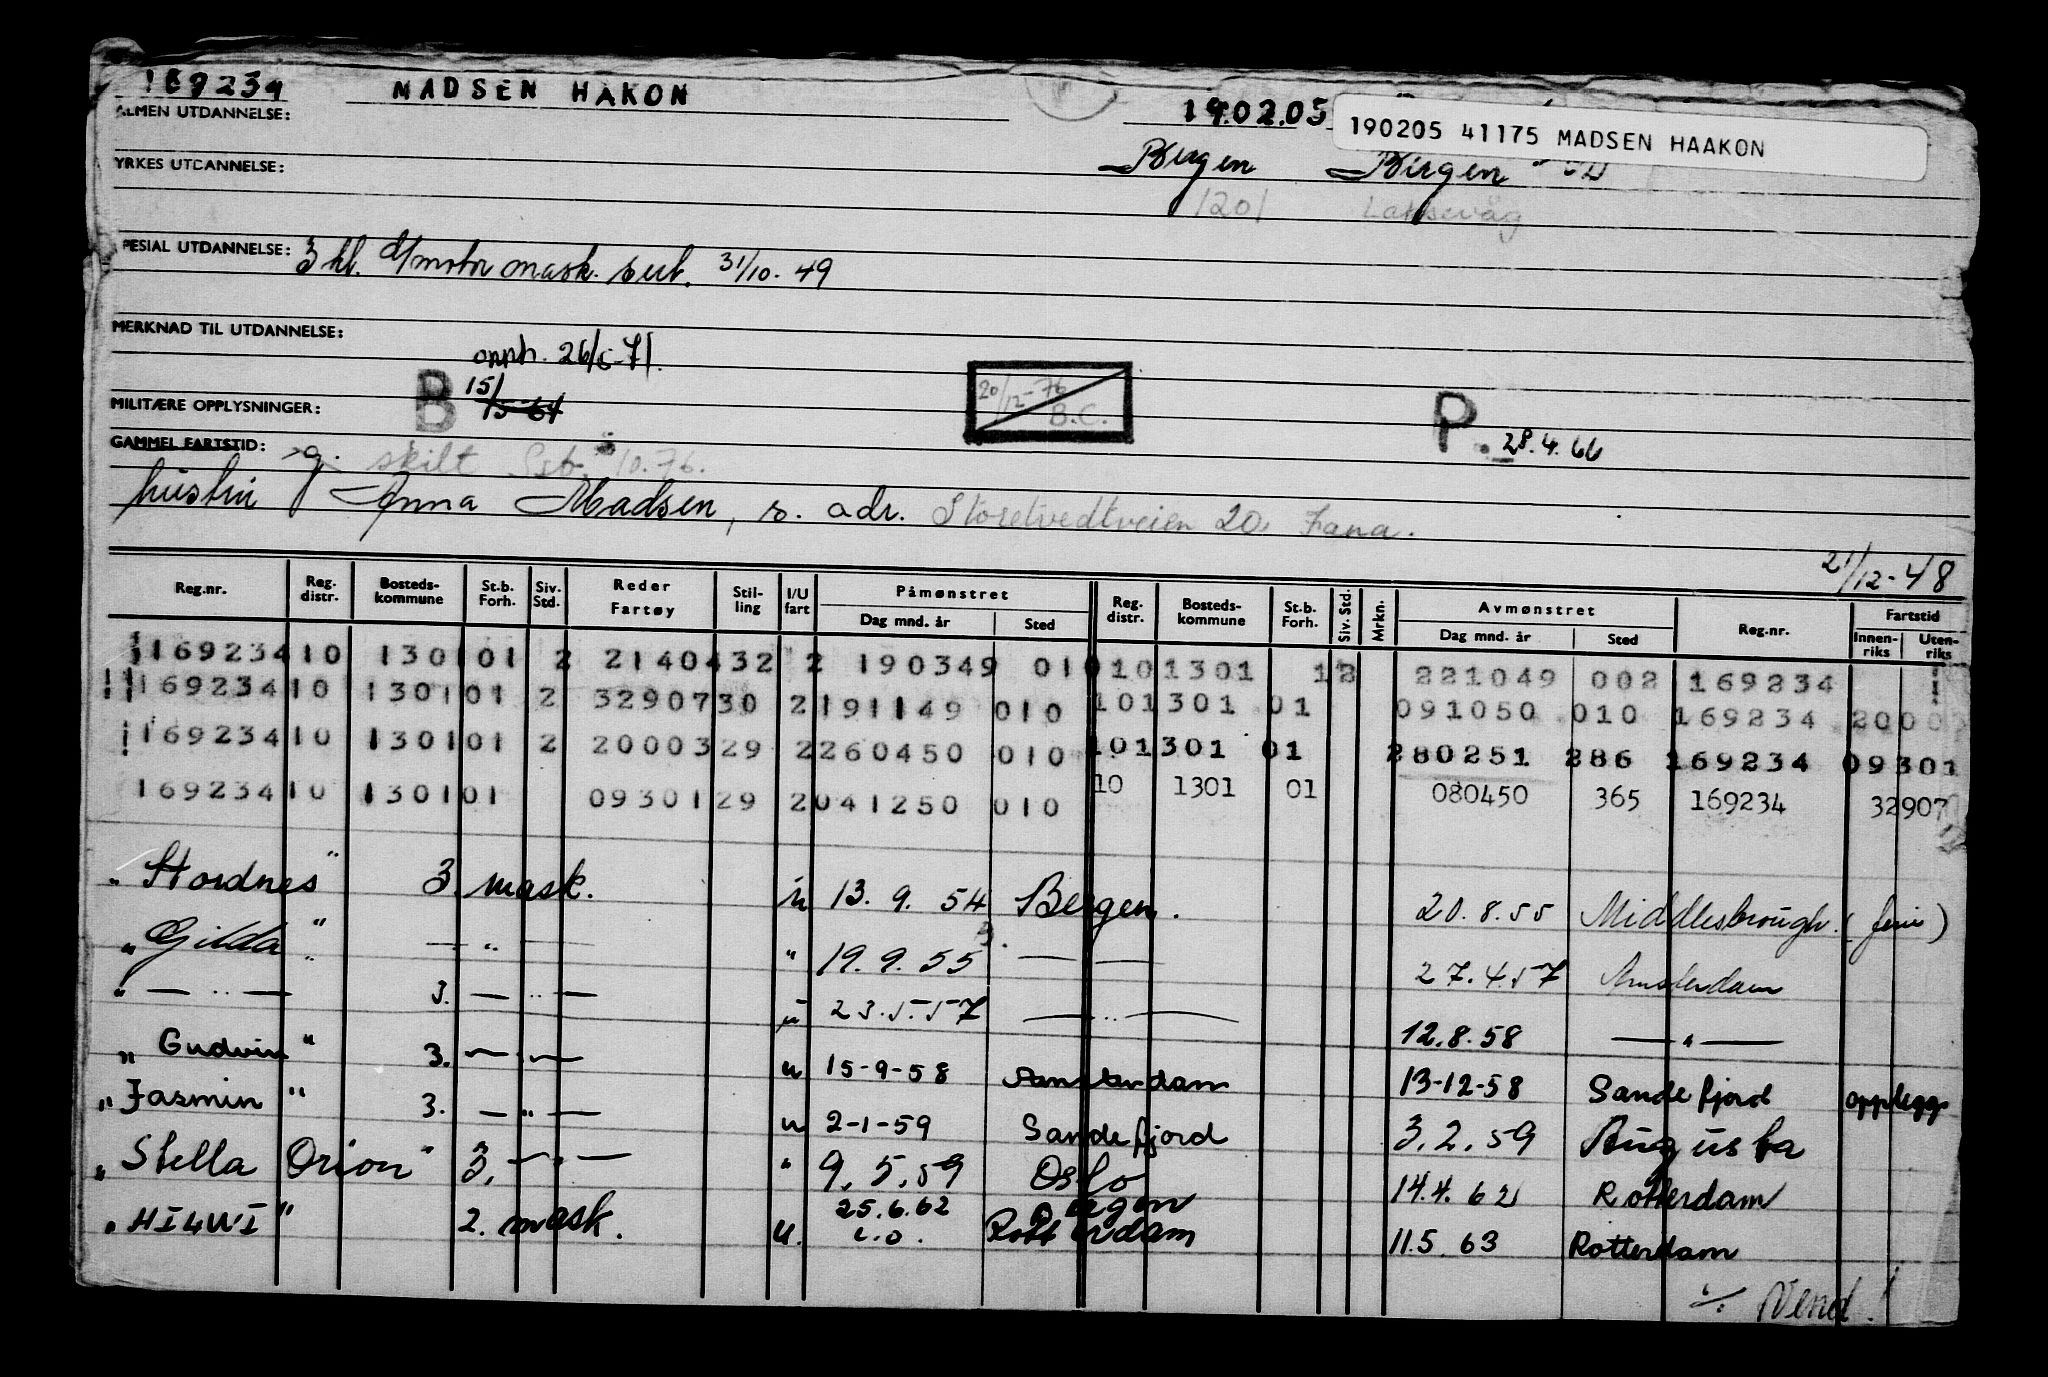 169234 MADSEN HAKON 19.02.05 190205 41175 MADSEN HAAKON
ALMEN UTDANNELSE:
Bergen Bergen
YRKES UTDANNELSE:
1201 Laksevåg
SPESIAL UTDANNELSE: 3 kl. motor mask. sert. 31/10. 49
MERKNAD TIL UTDANNELSE:
opph. 26/ -71.
B 15/ 20/12-76 B.C. P. 28.4.66
MILITÆRE OPPLYSNINGER:
GAMMEL FARTSTID: g. skilt Ssb. 10.76.
hustru Anna Madsen, s. adr. Storetvedtveien 20, Fana.
21/12-48
Reg.nr. Reg. distr. Bosteds-kommune St.b. Forh. Siv. Std. Reder Fartøy Stil-ling I/U fart Påmønstret Dag mnd. år Sted Reg. distr. Bosteds-kommune St.b. Forh. Siv. Std. Mrkn. Avmønstret Dag mnd. år Sted Reg.nr. Fartstid Innen-riks Uten-riks
169234 10 1301 01 2 21404 32 2 190349 010 10 1301 12 221049 002 169234
169234 10 1301 01 2 32907 30 2 191149 010 10 1301 01 091050 010 169234 2000
169234 10 1301 01 2 20003 29 2 260450 010 10 1301 01 280251 286 169234 09301
169234 10 1301 01 09301 29 2 041250 010 10 1301 01 080450 365 169234 32907
" Stordnes " 3. mask. u 13. 9. 54 Bergen. 20.8.55 Middlesbrough. (ferie)
" Gilda " — " — " 19.9.55 — — 27.4.57 Amsterdam
" — " — 3. — " — u 23.5.57 — " — 12.8.58 — " —
" Gudvin " 3. — " — u 15-9-58 Amsterdam 13-12-58 Sandefjord opplegg
" Jasmin " 3. — " — u 2-1-59 Sandefjord 3.2.59 Augusta
" Stella Orion " 3. — " — " 9.5.59 Oslo 14.4.62 Rotterdam
" HILWI " 2. mask. u. 25.6.62 i.o. Bergen Rotterdam 11.5.63 Rotterdam
./. Vend!